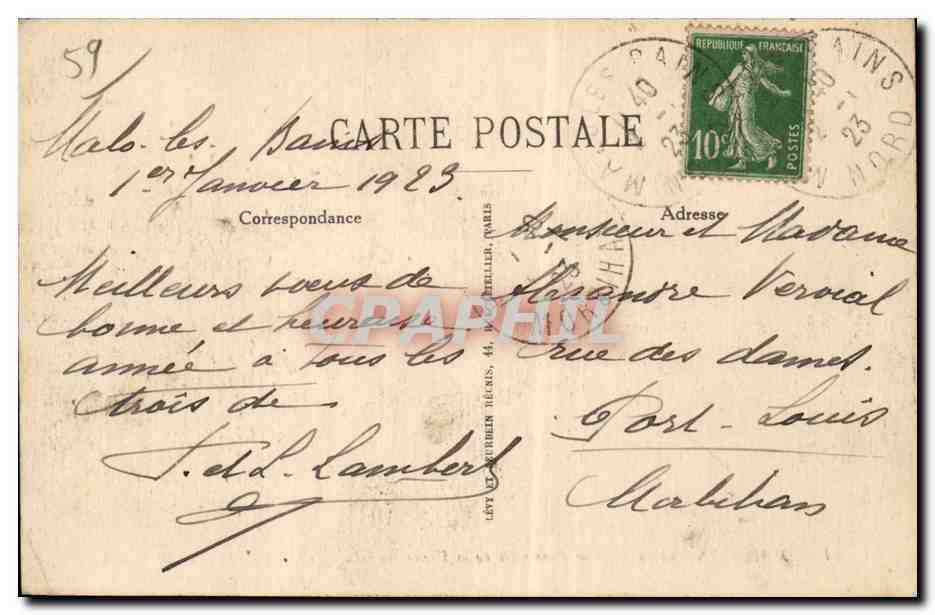 59
RÉPUBLIQUE FRANÇAISE
10c
POSTES
MALO LES BAINS
NORD
23
CARTE POSTALE
Malo-les-Bains
1er Janvier 1923
Correspondance
Adresse
Meilleurs voeus de
bonne et heureuse
année à tous les
trois de
F. et L. Lambert
LÉVY ET NEURDEIN RÉUNIS, 44, R. LETELLIER, PARIS
Monsieur et Madame
Vervial
rue des dames.
Port-Louis
Morbihan
MORBIHAN
CPAPHIL